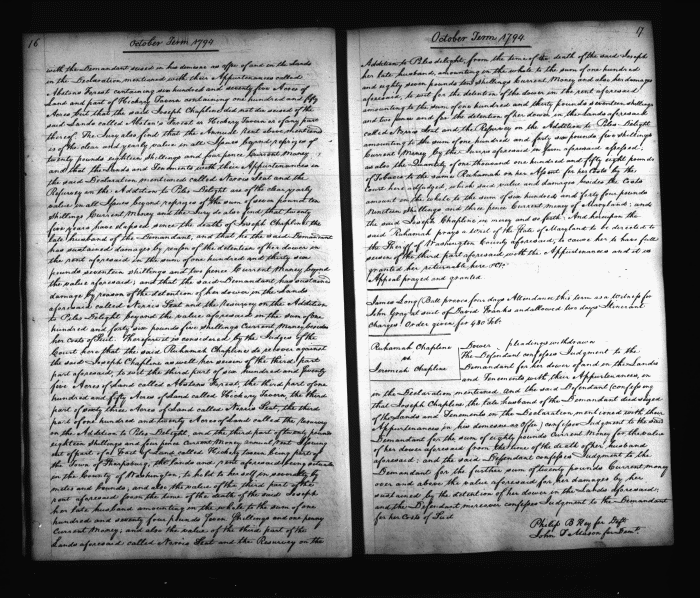 16
October Term 1794
with the Demandant seized in his demesne as of fee of and in the Lands
in the Declaration mentioned with their Appurtenances called
Abstons Forest containing six hundred and seventy five Acres of
Land and part of Hickory Tavern containing one hundred and fifty
Acres but that the said Joseph Chapline did not die seized of the
said Lands called Forest or Hickory Tavern or of any part
thereof. The Jury also find that the Annual Rent above mentioned
is of the clear and yearly value in all Issues beyond reprizes of
twenty pounds eighteen shillings and four pence Current Money
and that the Lands and Tenements with their Appurtenances in
the said Declaration mentioned called Narris Seat and the
Resurvey on the Addition to Piles Delight are of the clear yearly
value in all Issues beyond reprizes of the sum of seven pounds ten
shillings Current Money and the Jury do also find that twenty
five years have elapsed since the death of Joseph Chapline the
late husband of the Demandant, and that he the said Demandant
has sustained damages by reason of the detention of her dower in
the rent aforesaid in the sum of one hundred and thirty six
pounds seventeen shillings and two pence Current Money beyond
the value aforesaid; and that the said Demandant has sustained
damage by reason of the detention of her dower in the Lands
aforesaid called Narris Seat and the resurvey on the Addition
to Piles Delight beyond the value aforesaid in the sum of one
hundred and forty six pounds five shillings Current Money besides
her Costs of Suit. Therefore it is considered by the Judges of the
Court here that the said Ruhamah Chapline do recover against
the said Joseph Chapline as well her seizen of the third part
part aforesaid, to wit the third part of six hundred and seventy
five Acres of Land called Abstons Forest, the third part of one
hundred and fifty Acres of Land called Hickory Tavern, the third
part of sixty three Acres of Land called Narris Seat, the third
part of one hundred and twenty Acres of Land called the resurvey
on the Addition to Piles Delight and the third part of twenty pounds
eighteen shillings and four pence Current Money annual Rent
out of part of a Tract of Land called Hickory Tavern being part of
the Town of Sharpsburg, the Lands and rent aforesaid being situate
in the County of Washington, to hold to herself in severalty by
metes and bounds and also the value of the third part of the
rent aforesaid from the time of the death of the said Joseph
her late husband amounting in the whole to the sum of one
hundred and seventy four pounds seven shillings and one penny
Current Money; and also the value of the third part of the
Lands aforesaid called Narris Seat and the Resurvey on the
17
October Term 1794
Addition to Piles delight, from the time of the death of the said Joseph
her late husband, amounting in the whole to the sum of one hundred
and eighty seven pounds ten shillings Current Money and also her damages
aforesaid, to wit for the detention of the dower in the rent aforesaid
amounting to the sum of one hundred and thirty pounds seventeen shillings
and two pence and for the detention of her dower in the lands aforesaid
called Narris Seat and the Resurvey on the Addition to Piles Delight
amounting to the sum of one hundred and forty six pounds five shillings
Current Money by the Jurors aforesaid in form aforesaid assessed;
as also the Quantity of one thousand one hundred and fifty eight pounds
of Tobacco to the same Ruhamah on her Assent for her Costs by the
Court here adjudged, which said value and damages besides the Costs
amount in the whole to the sum of six hundred and forty four pounds
nineteen shillings and three pence Current Money of Maryland; and
the said Joseph Chapline in mercy and so forth. And hereupon the
said Ruhamah prays a Writ of the State of Maryland to be directed to
the Sheriff of Washington County aforesaid, to cause her to have full
seizen of the third part aforesaid with the Appurtenances and it is
granted her returnable here &c.
Appeal prayed and granted
James Long (Batt) proves four days Attendance this term as a Witness for
John Gray at suit of David Franks and allowed two days Itinerant
Charges Order given for 480 Tob:
Ruhamah Chapline
vs
Jeremiah Chapline
Dower, pleadings withdrawn
The Defendant confesses Judgment to the
Demandant for her dower of and in the Lands
and Tenements with their Appurtenances, in
in the Declaration mentioned and the said Defendant (confessing
that Joseph Chapline the late husband of the Demandant died seized
of the Lands and Tenements in the Declaration mentioned with their
Appurtenances in his demesne as of fee) confesses Judgment to the said
Demandant for the sum of eighty pounds Current Money for the value
of her dower aforesaid from the time of the death of her husband
aforesaid; and the said Defendant confesses Judgment to the
Demandant for the further sum of twenty pounds Current money
over and above the value aforesaid for her damages by her
sustained by the detention of her dower in the Lands aforesaid;
and the Defendant moreover confesses Judgment to the Demandant
for her Costs of Suit
Philip B Key for Deft.
John T Mason for Demt.